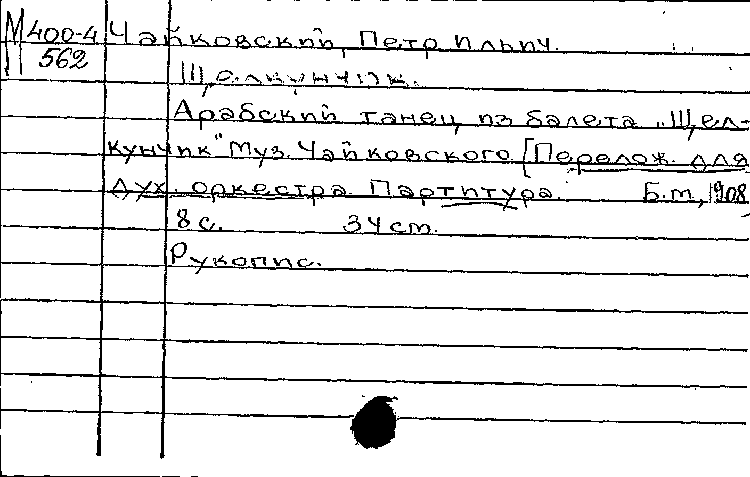 М 400-4 Чайковский, Петр Ильич.
II 562
Щелкунчик.
Арабский танец из балета „Щел-
кунчик" Муз. Чайковского [Перелож. для
дух. оркестра. Партитура. Б.м., 1908,
8 с. 34 см.
Рукопис.